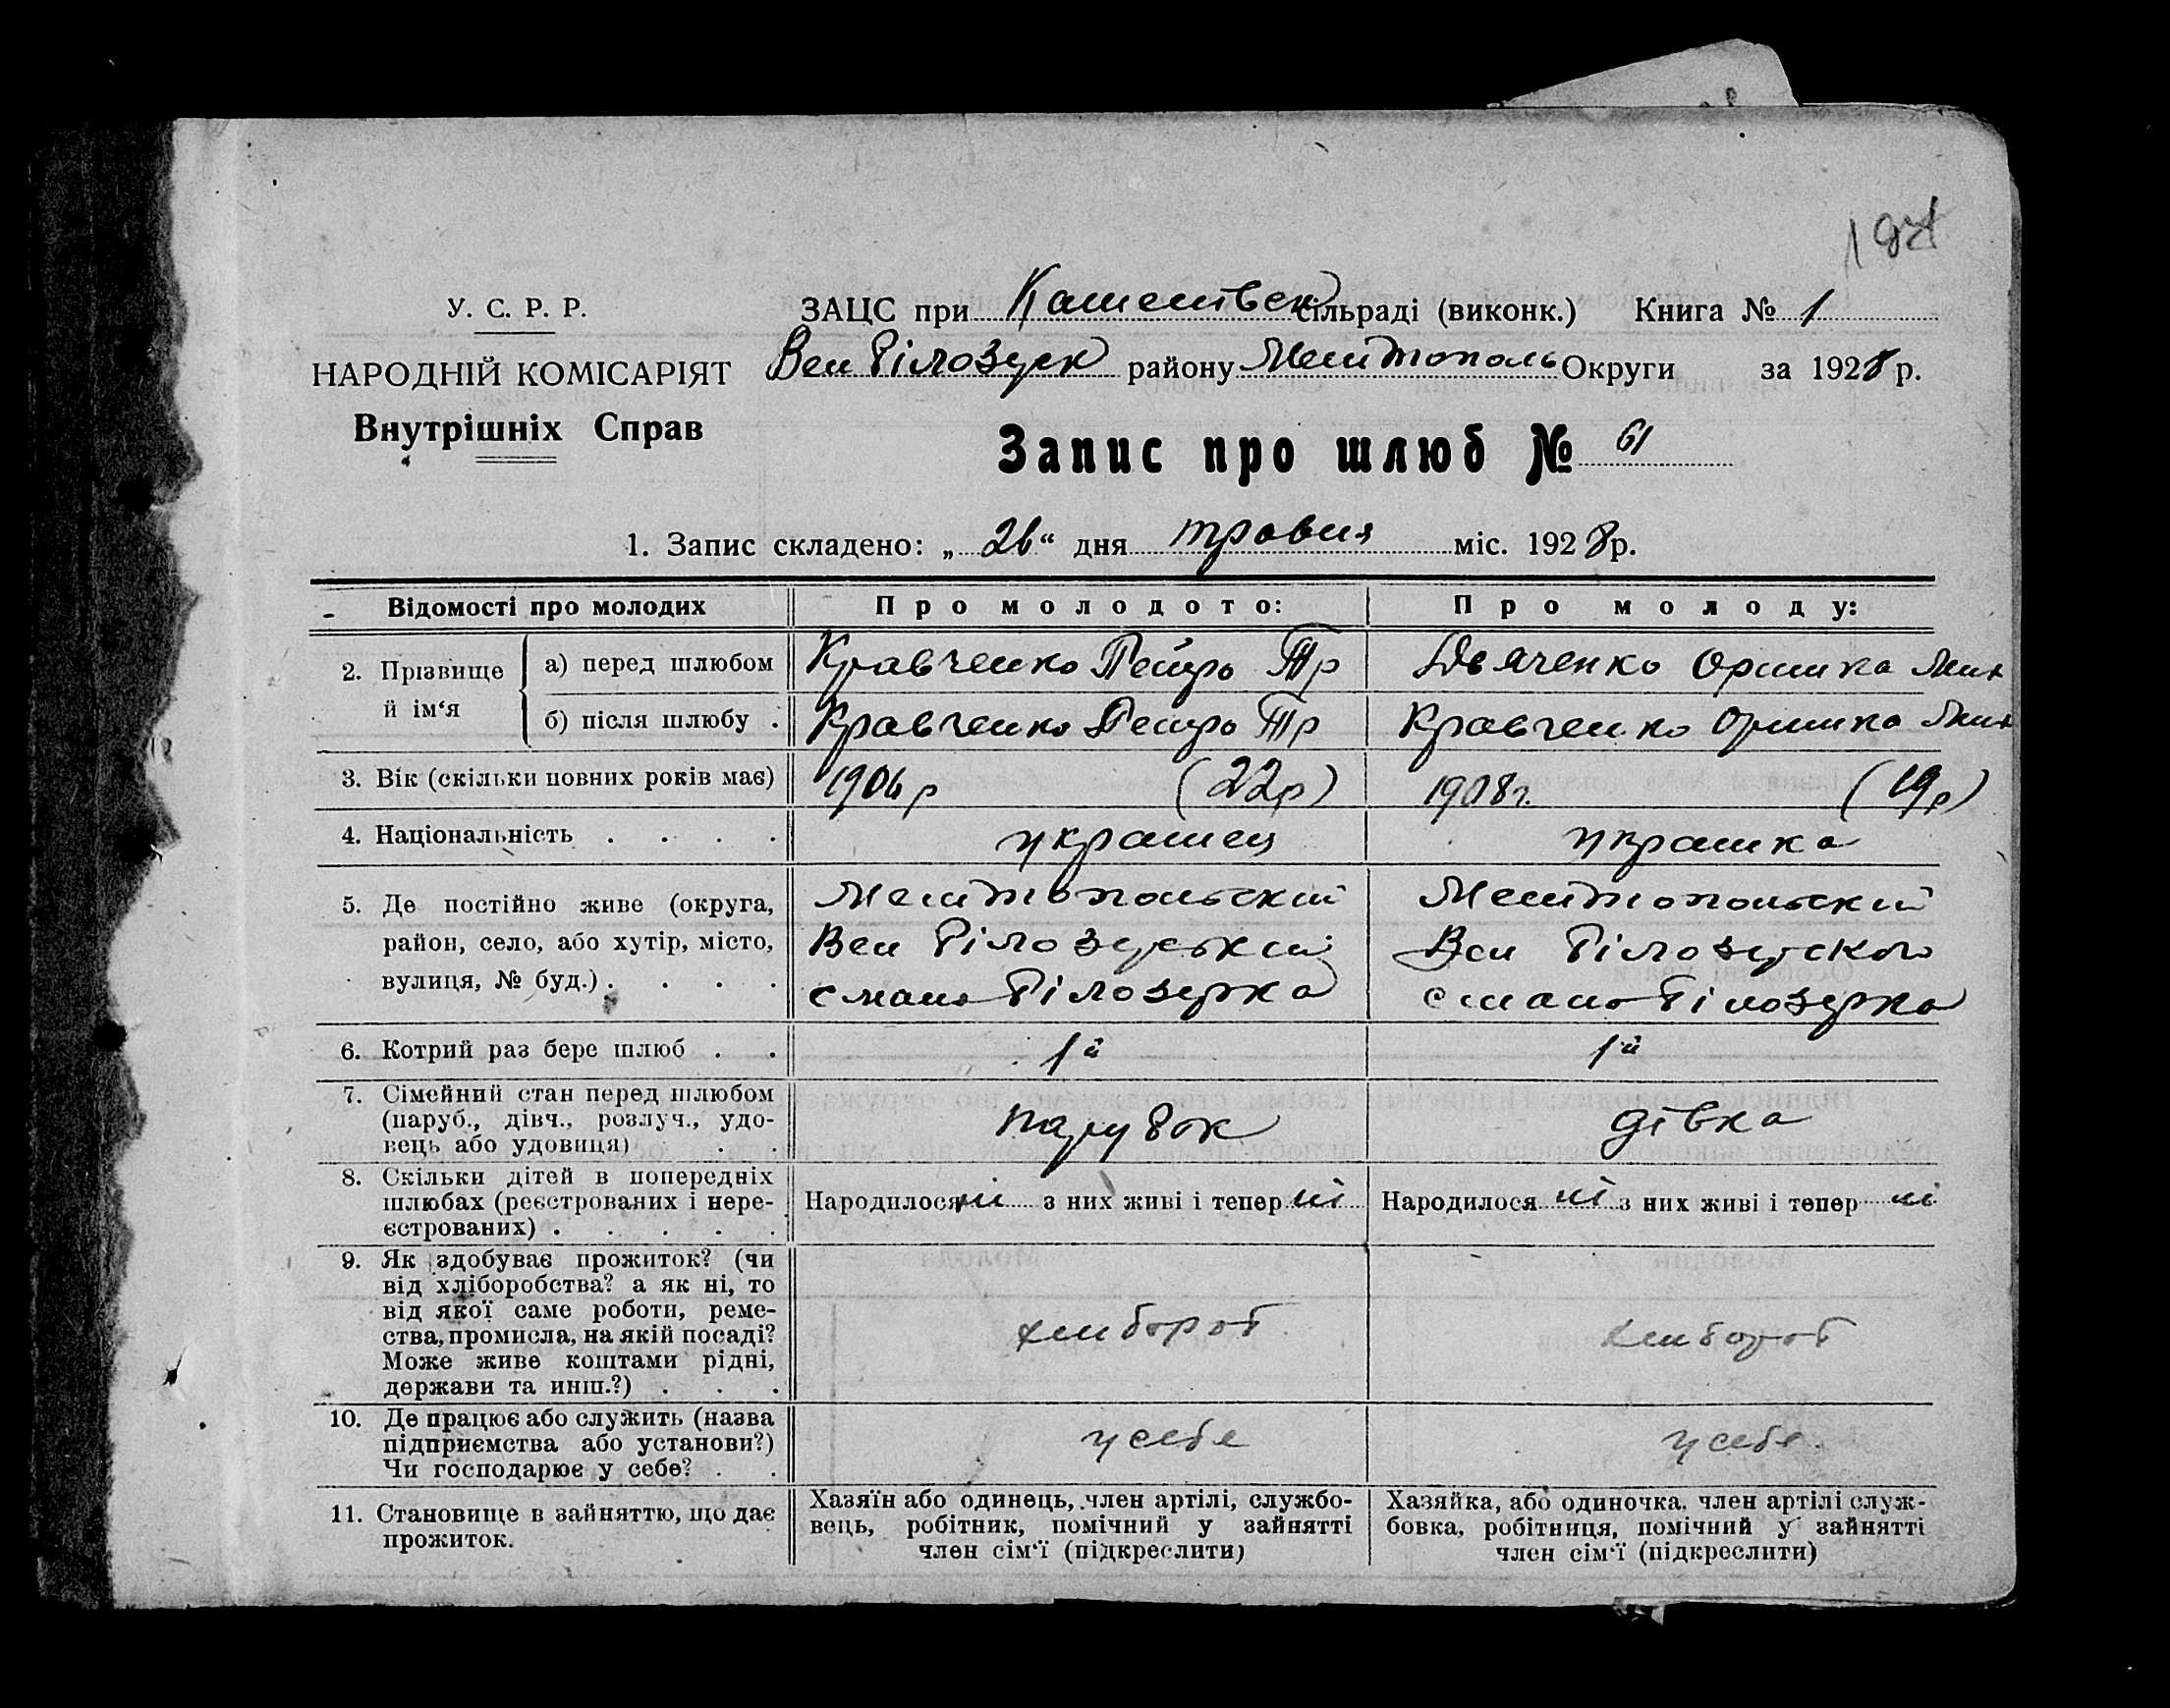 У. С. Р. Р.
НАРОДНІЙ КОМІСАРІЯТ
Внутрішніх Справ
ЗАЦС при сільраді (виконк.) Книга № 1
Вел Білозерк району Мелитополь Округи за 1928 р.
Запис про шлюб № 61
1. Запис складено: „ 26 “ дня травня міс. 1928 р.
Відомості про молодих Про молодото: Про молоду:
2. Прізвище й ім‘я
а) перед шлюбом Кравченко Петро Тр Дьяченко Оришка
б) після шлюбу . Кравченко Петро Тр Кравченко Оришка
3. Вік (скільки повних років має) 1906 р (22р) 1908 г. (19р)
4. Національність . . . . украинец украинка
5. Де постійно живе (округа, Мелитопольский Мелитопольский
район, село, або хутір, місто, Вел Білозерський Вел Білозерского
вулиця, № буд.) . . . . с мало Білозерка с мало Білозерка
6. Котрий раз бере шлюб . . 1й 1й
7. Сімейний стан перед шлюбом
(паруб., дівч., розлуч., удо-
вець або удовиця) . . парубок дівка
8. Скільки дітей в попередніх
шлюбах (реєстрованих і нере- Народилося ні з них живі і тепер ні Народилося ні з них живі і тепер ні
єстрованих) . . . . .
9. Як здобуває прожиток? (чи
від хліборобства? а як ні, то
від якої саме роботи, реме-
ства, промисла, на якій посаді? хлибороб хлибороб
Може живе коштами рідні,
держави та инш.?) . . .
10. Де працює або служить (назва
підприємства або установи?) у себе у себе
Чи господарює у себе? . .
11. Становище в зайняттю, що дає
прожиток.
Хазяїн або одинець, член артілі, службо-
вець, робітник, помічний у зайнятті
член сім‘ї (підкреслити)
Хазяйка, або одиночка, член артілі служ-
бовка, робітниця, помічний у зайнятті
член сім‘ї (підкреслити)